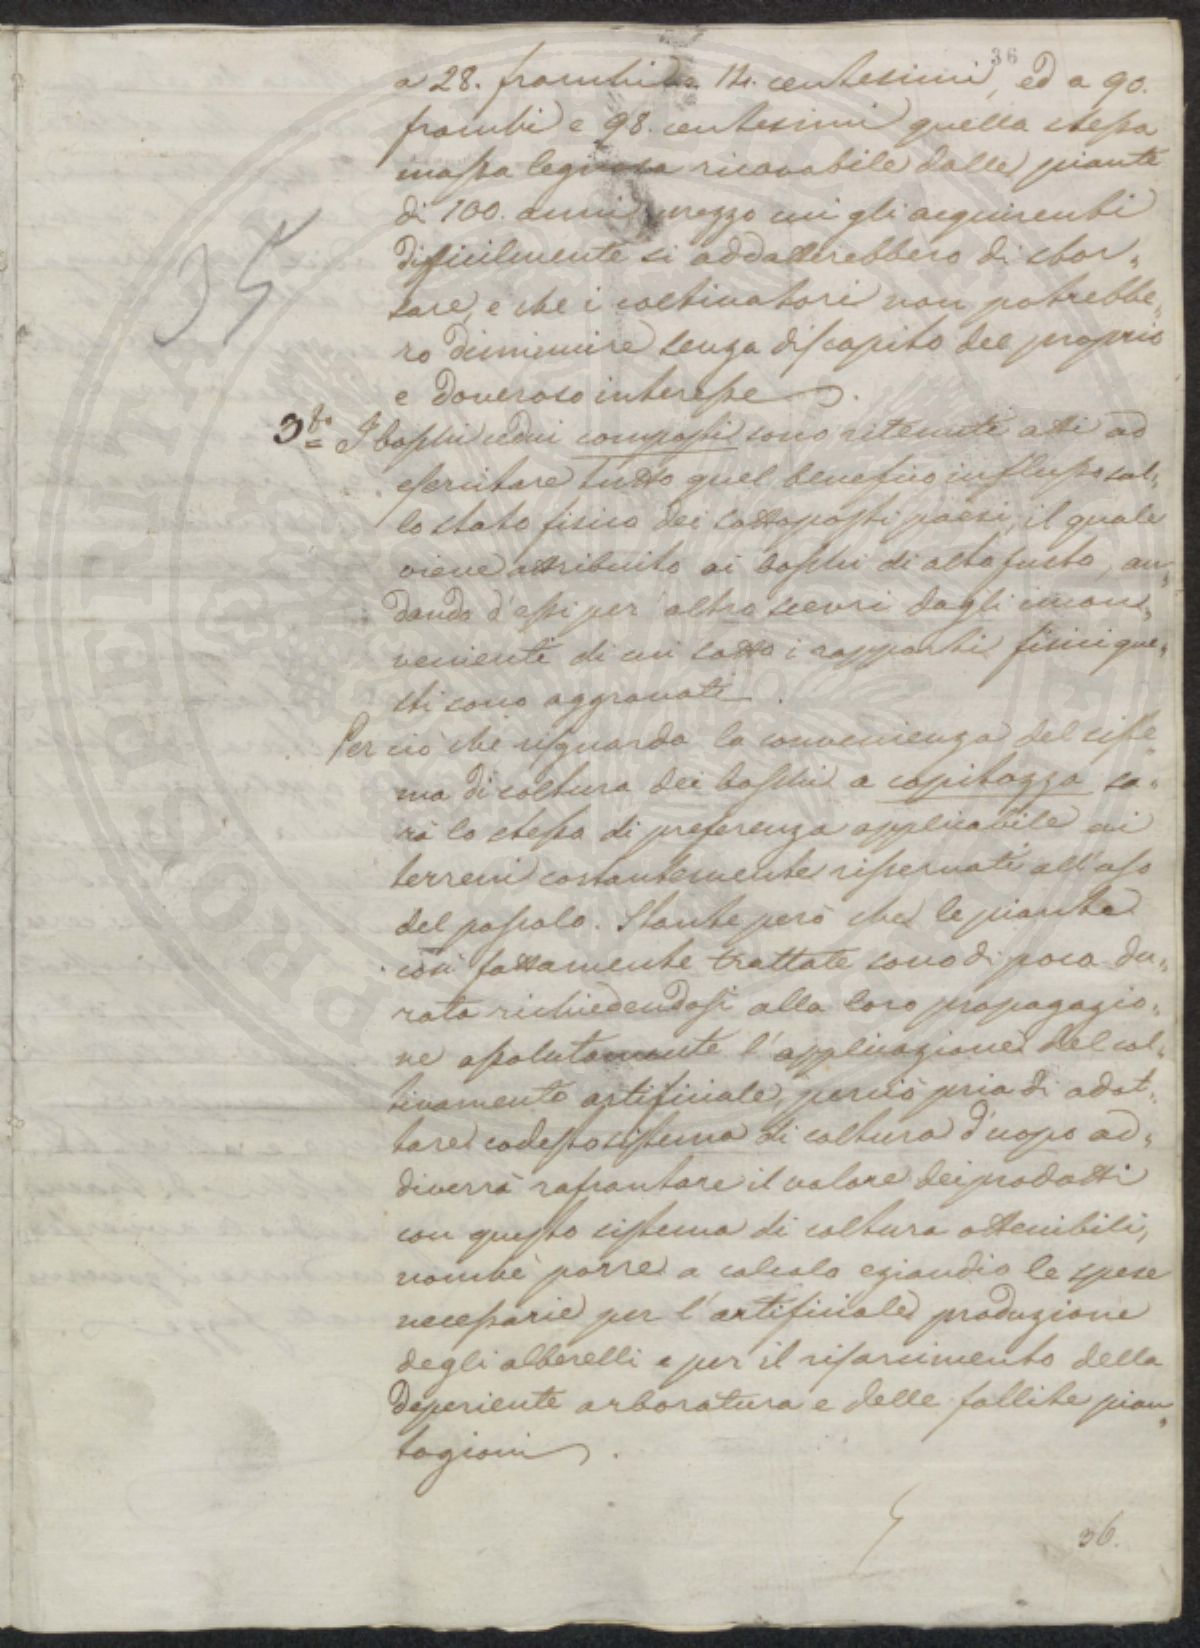 36
a 28. franchi e 14. centesimi, ed a 90.
franchi e 98. centesimi quella stessa
massa legnosa ricavabile dalle piante
di 100. anni, prezzo cui gli acquirenti
difficilmente si addatterebbero di sbor„
sare, e che i coltivatori non potrebbe„
ro diminuire senza discapito del proprio
e doveroso interesse.
35
3.zo I boschi cedui composti sono ritenuti atti ad
esercitare tutto quel benefico influsso sul„
lo stato fisico dei sottoposti paesi, il quale
viene attribuito ai boschi di alto fusto, an„
dando d'essi per altro scevri dagli incon„
venienti di cui sotto i rapporti fisici que„
sti sono aggravati.
Per ciò che risguarda la convenienza del siste„
ma di coltura dei boschi a capitozza sa„
rà lo stesso di preferenza applicabile ai
terreni costantemente risservati all'uso
del pascolo. Stante però che le piante
così fattamente trattate sono di poca du„
rata richiedendosi alla loro propagazio„
ne assolutamente l'applicazione del col„
tivamento artificiale, perciò pria di adot„
tare codesto sistema di coltura d'uopo ad„
diverrà rafrontare il valore dei prodotti
con questo sistema di coltura ottenibili,
nonchè porre a calcolo eziandio le spese
necessarie per l'artificiale produzione
degli alberelli e per il risarcimento della
deperiente arboratura e delle fallite pian„
tagioni.
36.
PROSPERITA